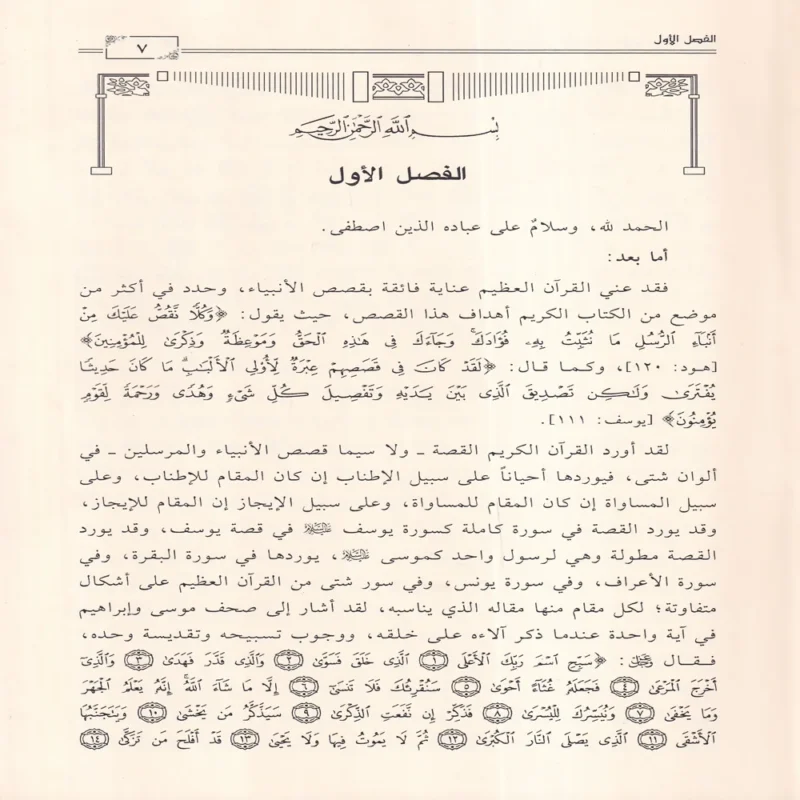 الفصل الأول
٧
بِسْمِ اللَّهِ الرَّحْمَٰنِ الرَّحِيمِ
الفصل الأول
الحمد لله، وسلامٌ على عباده الذين اصطفى.
أما بعد:
فقد عني القرآن العظيم عناية فائقة بقصص الأنبياء، وحدد في أكثر من
موضع من الكتاب الكريم أهداف هذا القصص، حيث يقول: ﴿وَكُلًّا نَّقُصُّ عَلَيْكَ مِنْ
أَنۢبَآءِ ٱلرُّسُلِ مَا نُثَبِّتُ بِهِۦ فُؤَادَكَ ۚ وَجَآءَكَ فِى هَٰذِهِ ٱلْحَقُّ وَمَوْعِظَةٌ وَذِكْرَىٰ لِلْمُؤْمِنِينَ﴾
[هود: ١٢٠]، وكما قال: ﴿لَقَدْ كَانَ فِى قَصَصِهِمْ عِبْرَةٌ لِّأُو۟لِى ٱلْأَلْبَٰبِ ۗ مَا كَانَ حَدِيثًا
يُفْتَرَىٰ وَلَٰكِن تَصْدِيقَ ٱلَّذِى بَيْنَ يَدَيْهِ وَتَفْصِيلَ كُلِّ شَىْءٍ وَهُدًى وَرَحْمَةً لِّقَوْمٍ
يُؤْمِنُونَ﴾ [يوسف: ١١١].
لقد أورد القرآن الكريم القصة ـ ولا سيما قصص الأنبياء والمرسلين ـ في
ألوان شتى، فيوردها أحياناً على سبيل الإطناب إن كان المقام للإطناب، وعلى
سبيل المساواة إن كان المقام للمساواة، وعلى سبيل الإيجاز إن المقام للإيجاز،
وقد يورد القصة في سورة كاملة كسورة يوسف عليه السلام في قصة يوسف، وقد يورد
القصة مطولة وهي لرسول واحد كموسى عليه السلام، يوردها في سورة البقرة، وفي
سورة الأعراف، وفي سورة يونس، وفي سور شتى من القرآن العظيم على أشكال
متفاوتة؛ لكل مقام منها مقاله الذي يناسبه، لقد أشار إلى صحف موسى وإبراهيم
في آية واحدة عندما ذكر آلاءه على خلقه، ووجوب تسبيحه وتقديسة وحده،
فـقـال ﷻ: ﴿سَبِّحِ ٱسْمَ رَبِّكَ ٱلْأَعْلَى ١ ٱلَّذِى خَلَقَ فَسَوَّىٰ ٢ وَٱلَّذِى قَدَّرَ فَهَدَىٰ ٣ وَٱلَّذِىٓ
أَخْرَجَ ٱلْمَرْعَىٰ ٤ فَجَعَلَهُۥ غُثَآءً أَحْوَىٰ ٥ سَنُقْرِئُكَ فَلَا تَنسَىٰٓ ٦ إِلَّا مَا شَآءَ ٱللَّهُ ۚ إِنَّهُۥ يَعْلَمُ ٱلْجَهْرَ
وَمَا يَخْفَىٰ ٧ وَنُيَسِّرُكَ لِلْيُسْرَىٰ ٨ فَذَكِّرْ إِن نَّفَعَتِ ٱلذِّكْرَىٰ ٩ سَيَذَّكَّرُ مَن يَخْشَىٰ ١٠ وَيَتَجَنَّبُهَا
ٱلْأَشْقَى ١١ ٱلَّذِى يَصْلَى ٱلنَّارَ ٱلْكُبْرَىٰ ١٢ ثُمَّ لَا يَمُوتُ فِيهَا وَلَا يَحْيَىٰ ١٣ قَدْ أَفْلَحَ مَن تَزَكَّىٰ ١٤